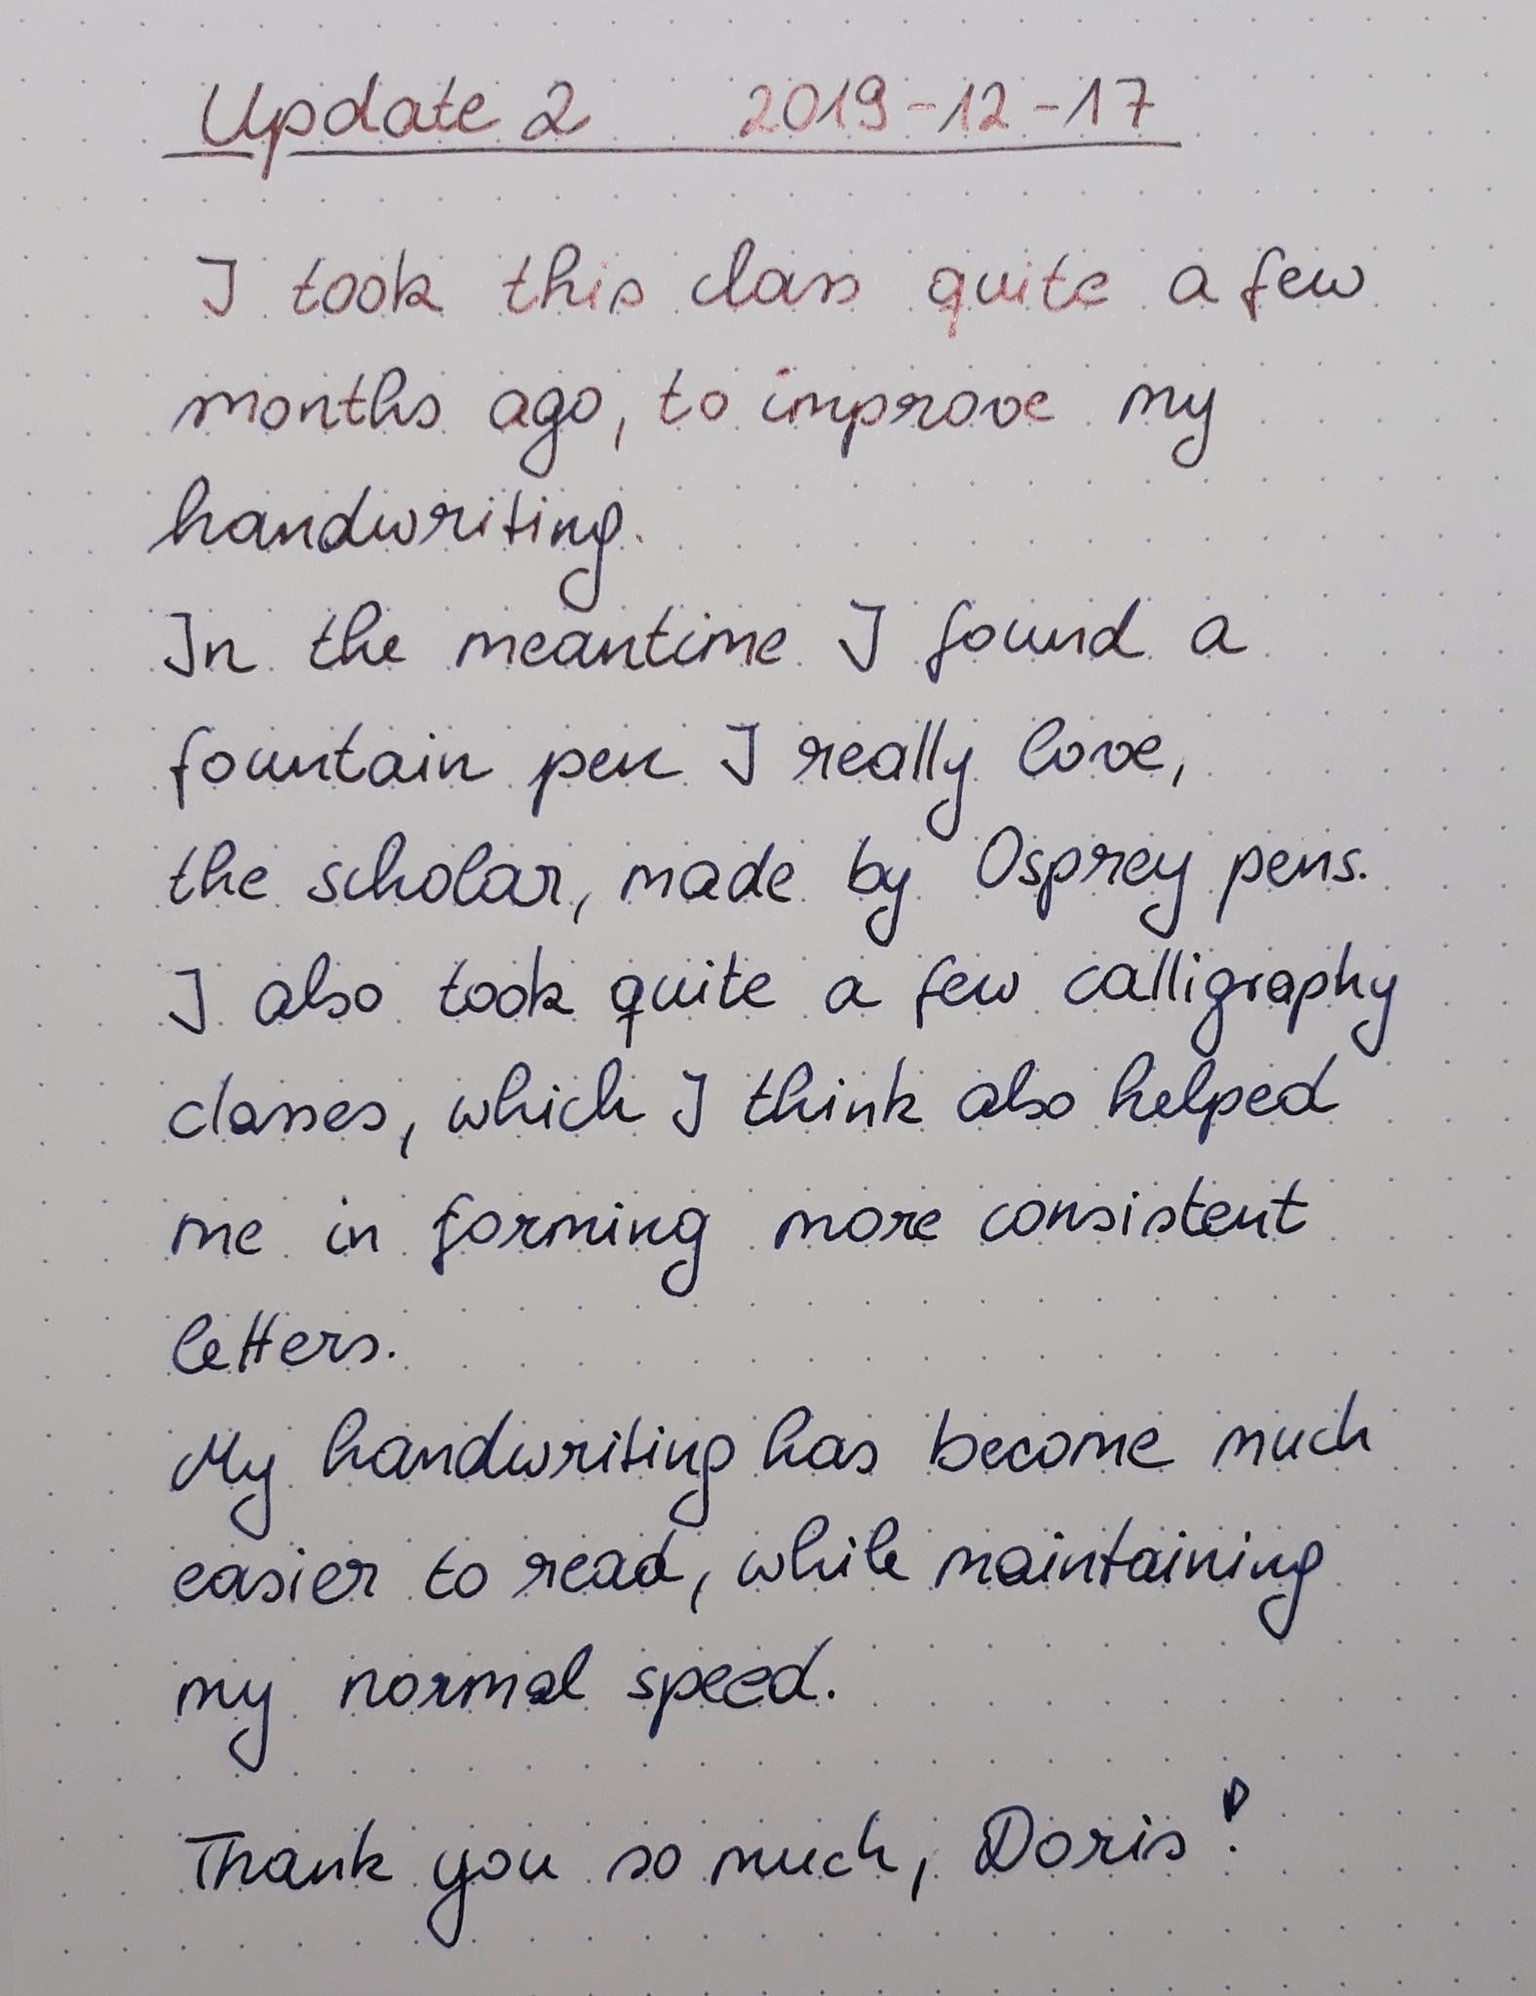 Update 2 2019-12-17
I took this class quite a few
months ago, to improve my
handwriting.
In the meantime I found a
fountain pen I really love,
the scholar, made by Osprey pens.
I also took quite a few calligraphy
classes, which I think also helped
me in forming more consistent
letters.
My handwriting has become much
easier to read, while maintaining
my normal speed.
Thank you so much, Doris!